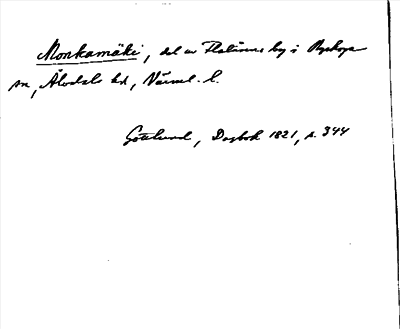 Monkamäki, del av Flatåsens by i Nyskoga
sn, Älvdals hd, Värml. l.
Gottlund, Dagbok 1821, s. 344